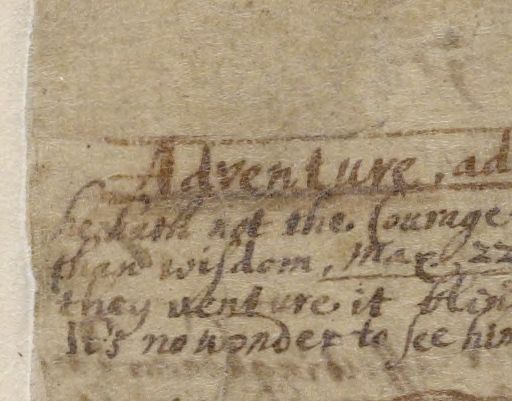 Adventure, ad
he hath not the Courage
than wisdom, Max. 22
they venture it blin
It's no wonder to see him